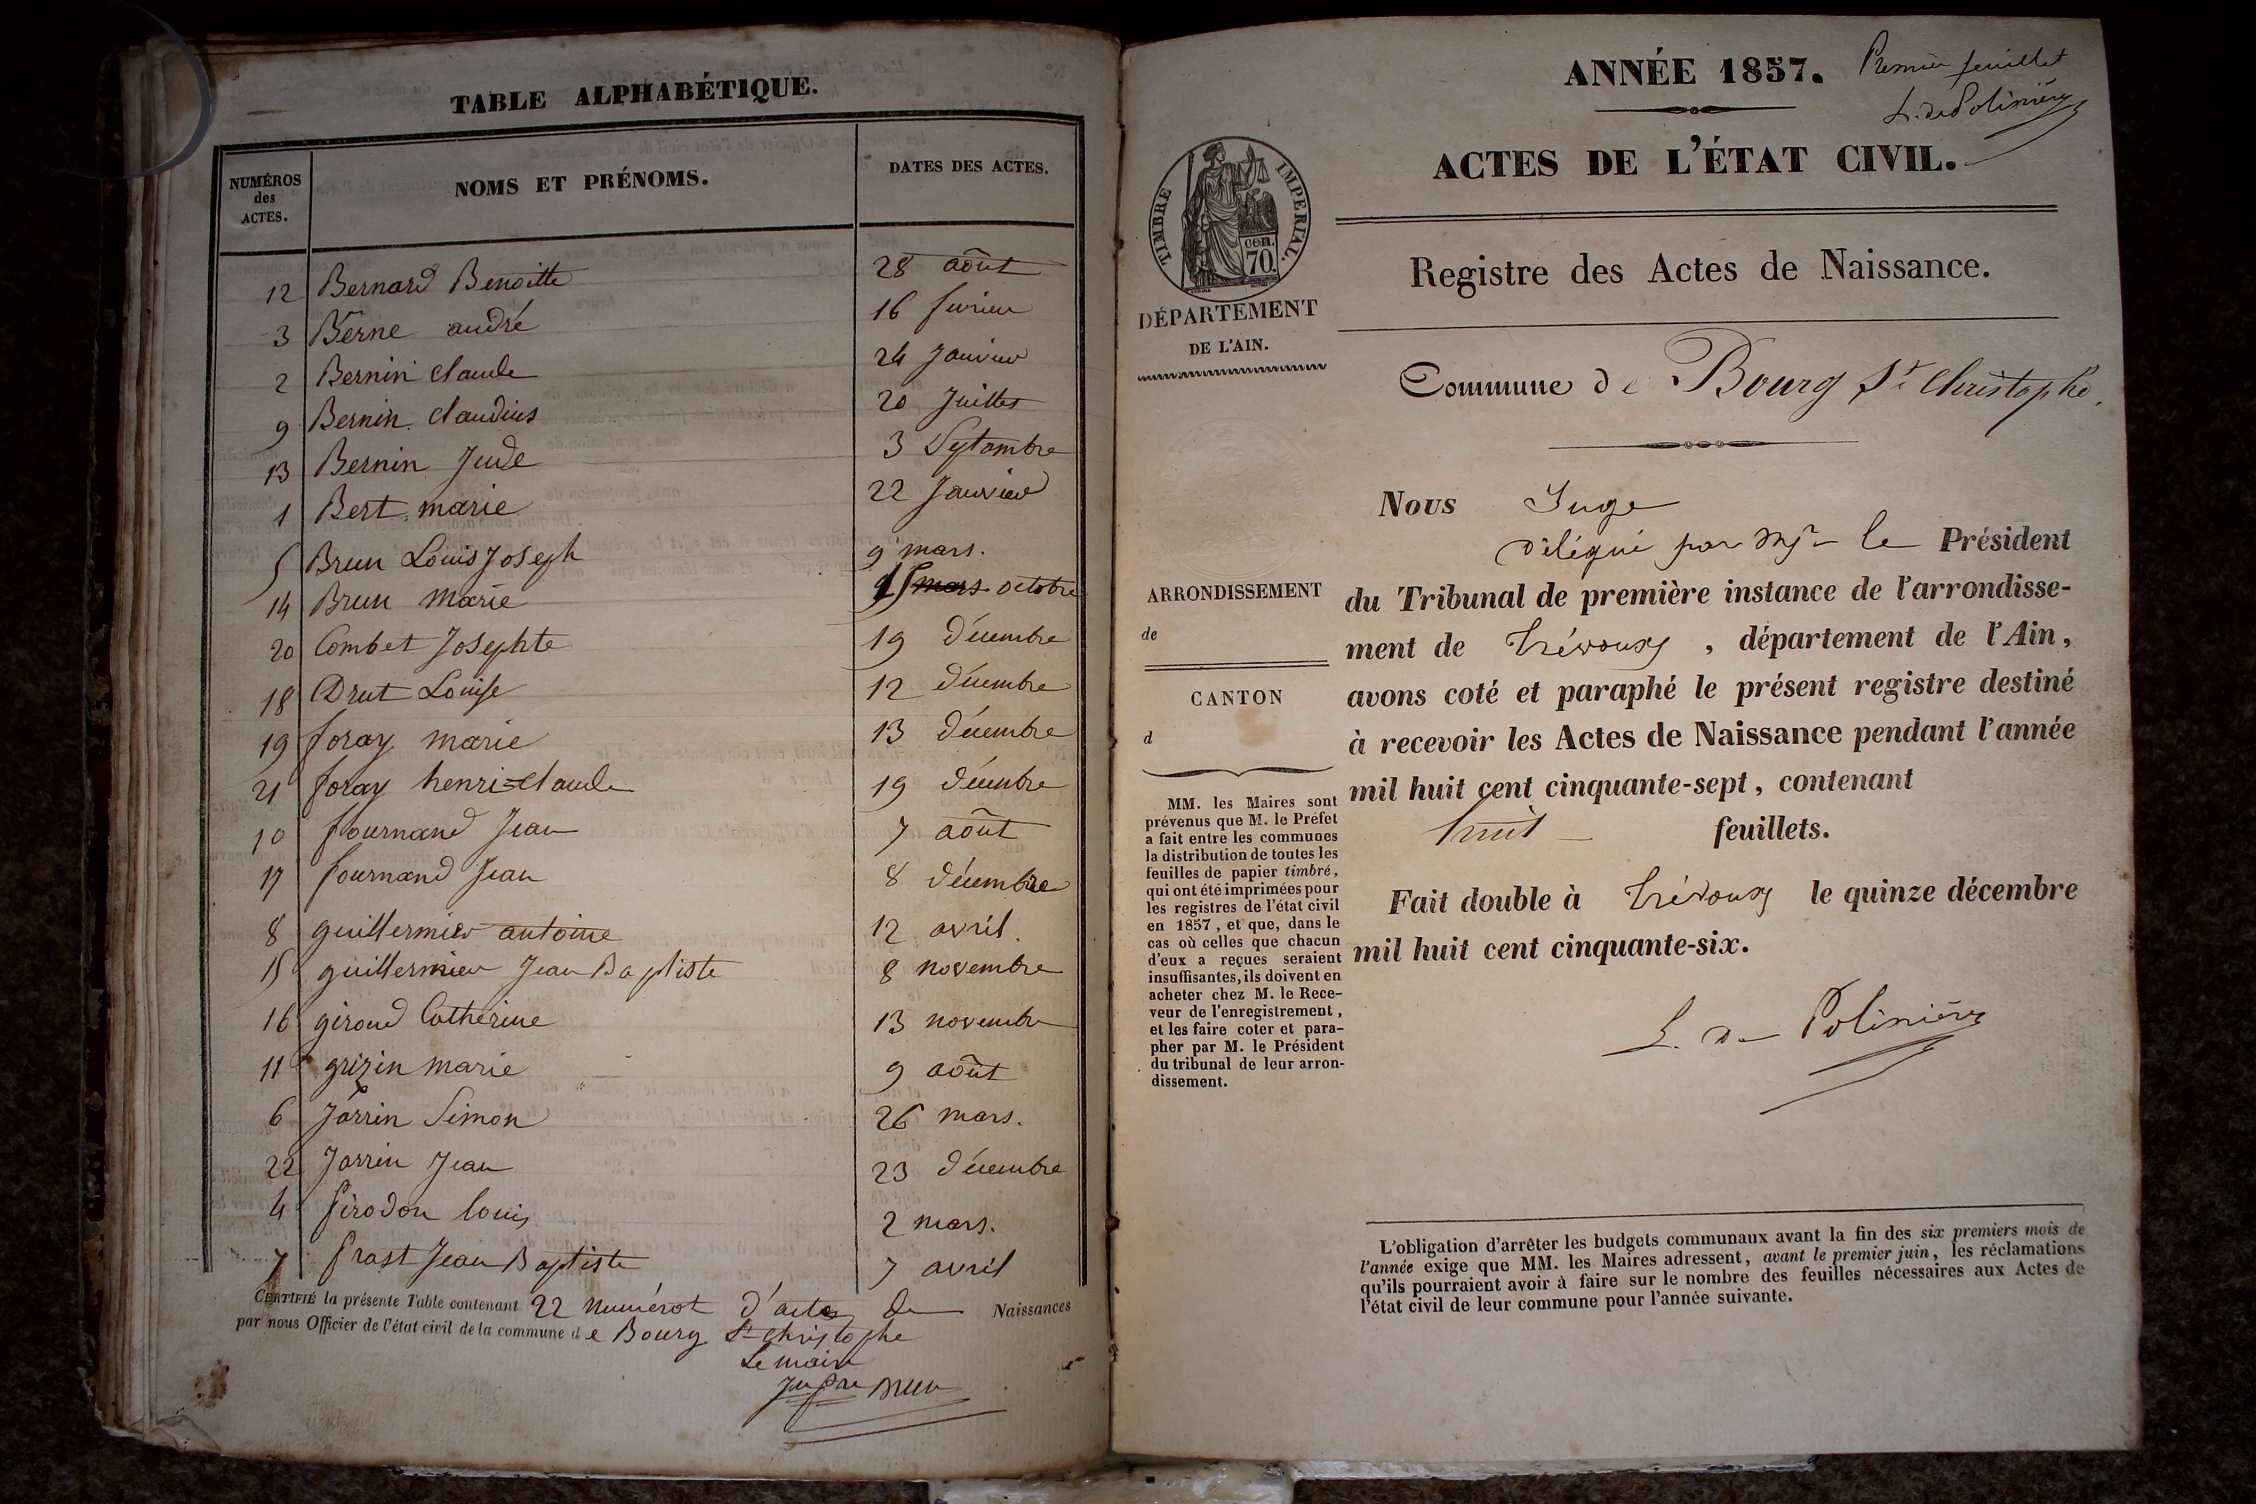 TABLE ALPHABÉTIQUE.
NUMÉROS des ACTES. NOMS ET PRÉNOMS. DATES DES ACTES.
12 Bernard Benoitte 28 août
3 Berne andré 16 fevrier
2 Bernin Claude 24 Janvier
9 Bernin Claudius 20 Juillet
13 Bernin Jude 3 Septembre
1 Bert marie 22 Janvier
5 Brun Louis Joseph 9 mars.
14 Brun Marie 15 mars octobre
20 Combet Josephte 19 décembre
18 Drut Louise 12 décembre
19 foray marie 13 décembre
21 foray henri=Claude 19 décembre
10 fournand Jean 7 août
17 fournand Jean 8 décembre
8 guillermier antoine 12 avril.
15 guillermier Jean Baptiste 8 novembre
16 giroud Catherine 13 novembre
11 grizin marie 9 août
6 Jarrin Simon 26 mars.
22 Jarrin Jean 23 décembre
4 Pirodon louis 2 mars.
7 Prost Jean Baptiste 7 avril
CERTIFIÉ la présente Table contenant 22 numérot d'actes de Naissances
par nous Officier de l'état civil de la commune de Bourg St christophe
Le maire
Brun
ANNÉE 1857.
Premier feuillet
L. de Polinière
ACTES DE L'ÉTAT CIVIL.
TIMBRE IMPERIAL.
CEN.
70
DÉPARTEMENT
DE L'AIN.
Registre des Actes de Naissance.
Commune de Bourg St Christophe.
ARRONDISSEMENT
de
CANTON
d
MM. les Maires sont
prévenus que M. le Préfet
a fait entre les communes
la distribution de toutes les
feuilles de papier timbré,
qui ont été imprimées pour
les registres de l'état civil
en 1857, et que, dans le
cas où celles que chacun
d'eux a reçues seraient
insuffisantes, ils doivent en
acheter chez M. le Rece-
veur de l'enregistrement,
et les faire coter et para-
pher par M. le Président
du tribunal de leur arron-
dissement.
Nous Juge
délégué par Mr le Président
du Tribunal de première instance de l'arrondisse-
ment de Trévoux, département de l'Ain,
avons coté et paraphé le présent registre destiné
à recevoir les Actes de Naissance pendant l'année
mil huit cent cinquante-sept, contenant
huit feuillets.
Fait double à Trévoux le quinze décembre
mil huit cent cinquante-six.
L. de Polinière
L'obligation d'arrêter les budgets communaux avant la fin des six premiers mois de
l'année exige que MM. les Maires adressent, avant le premier juin, les réclamations
qu'ils pourraient avoir à faire sur le nombre des feuilles nécessaires aux Actes de
l'état civil de leur commune pour l'année suivante.